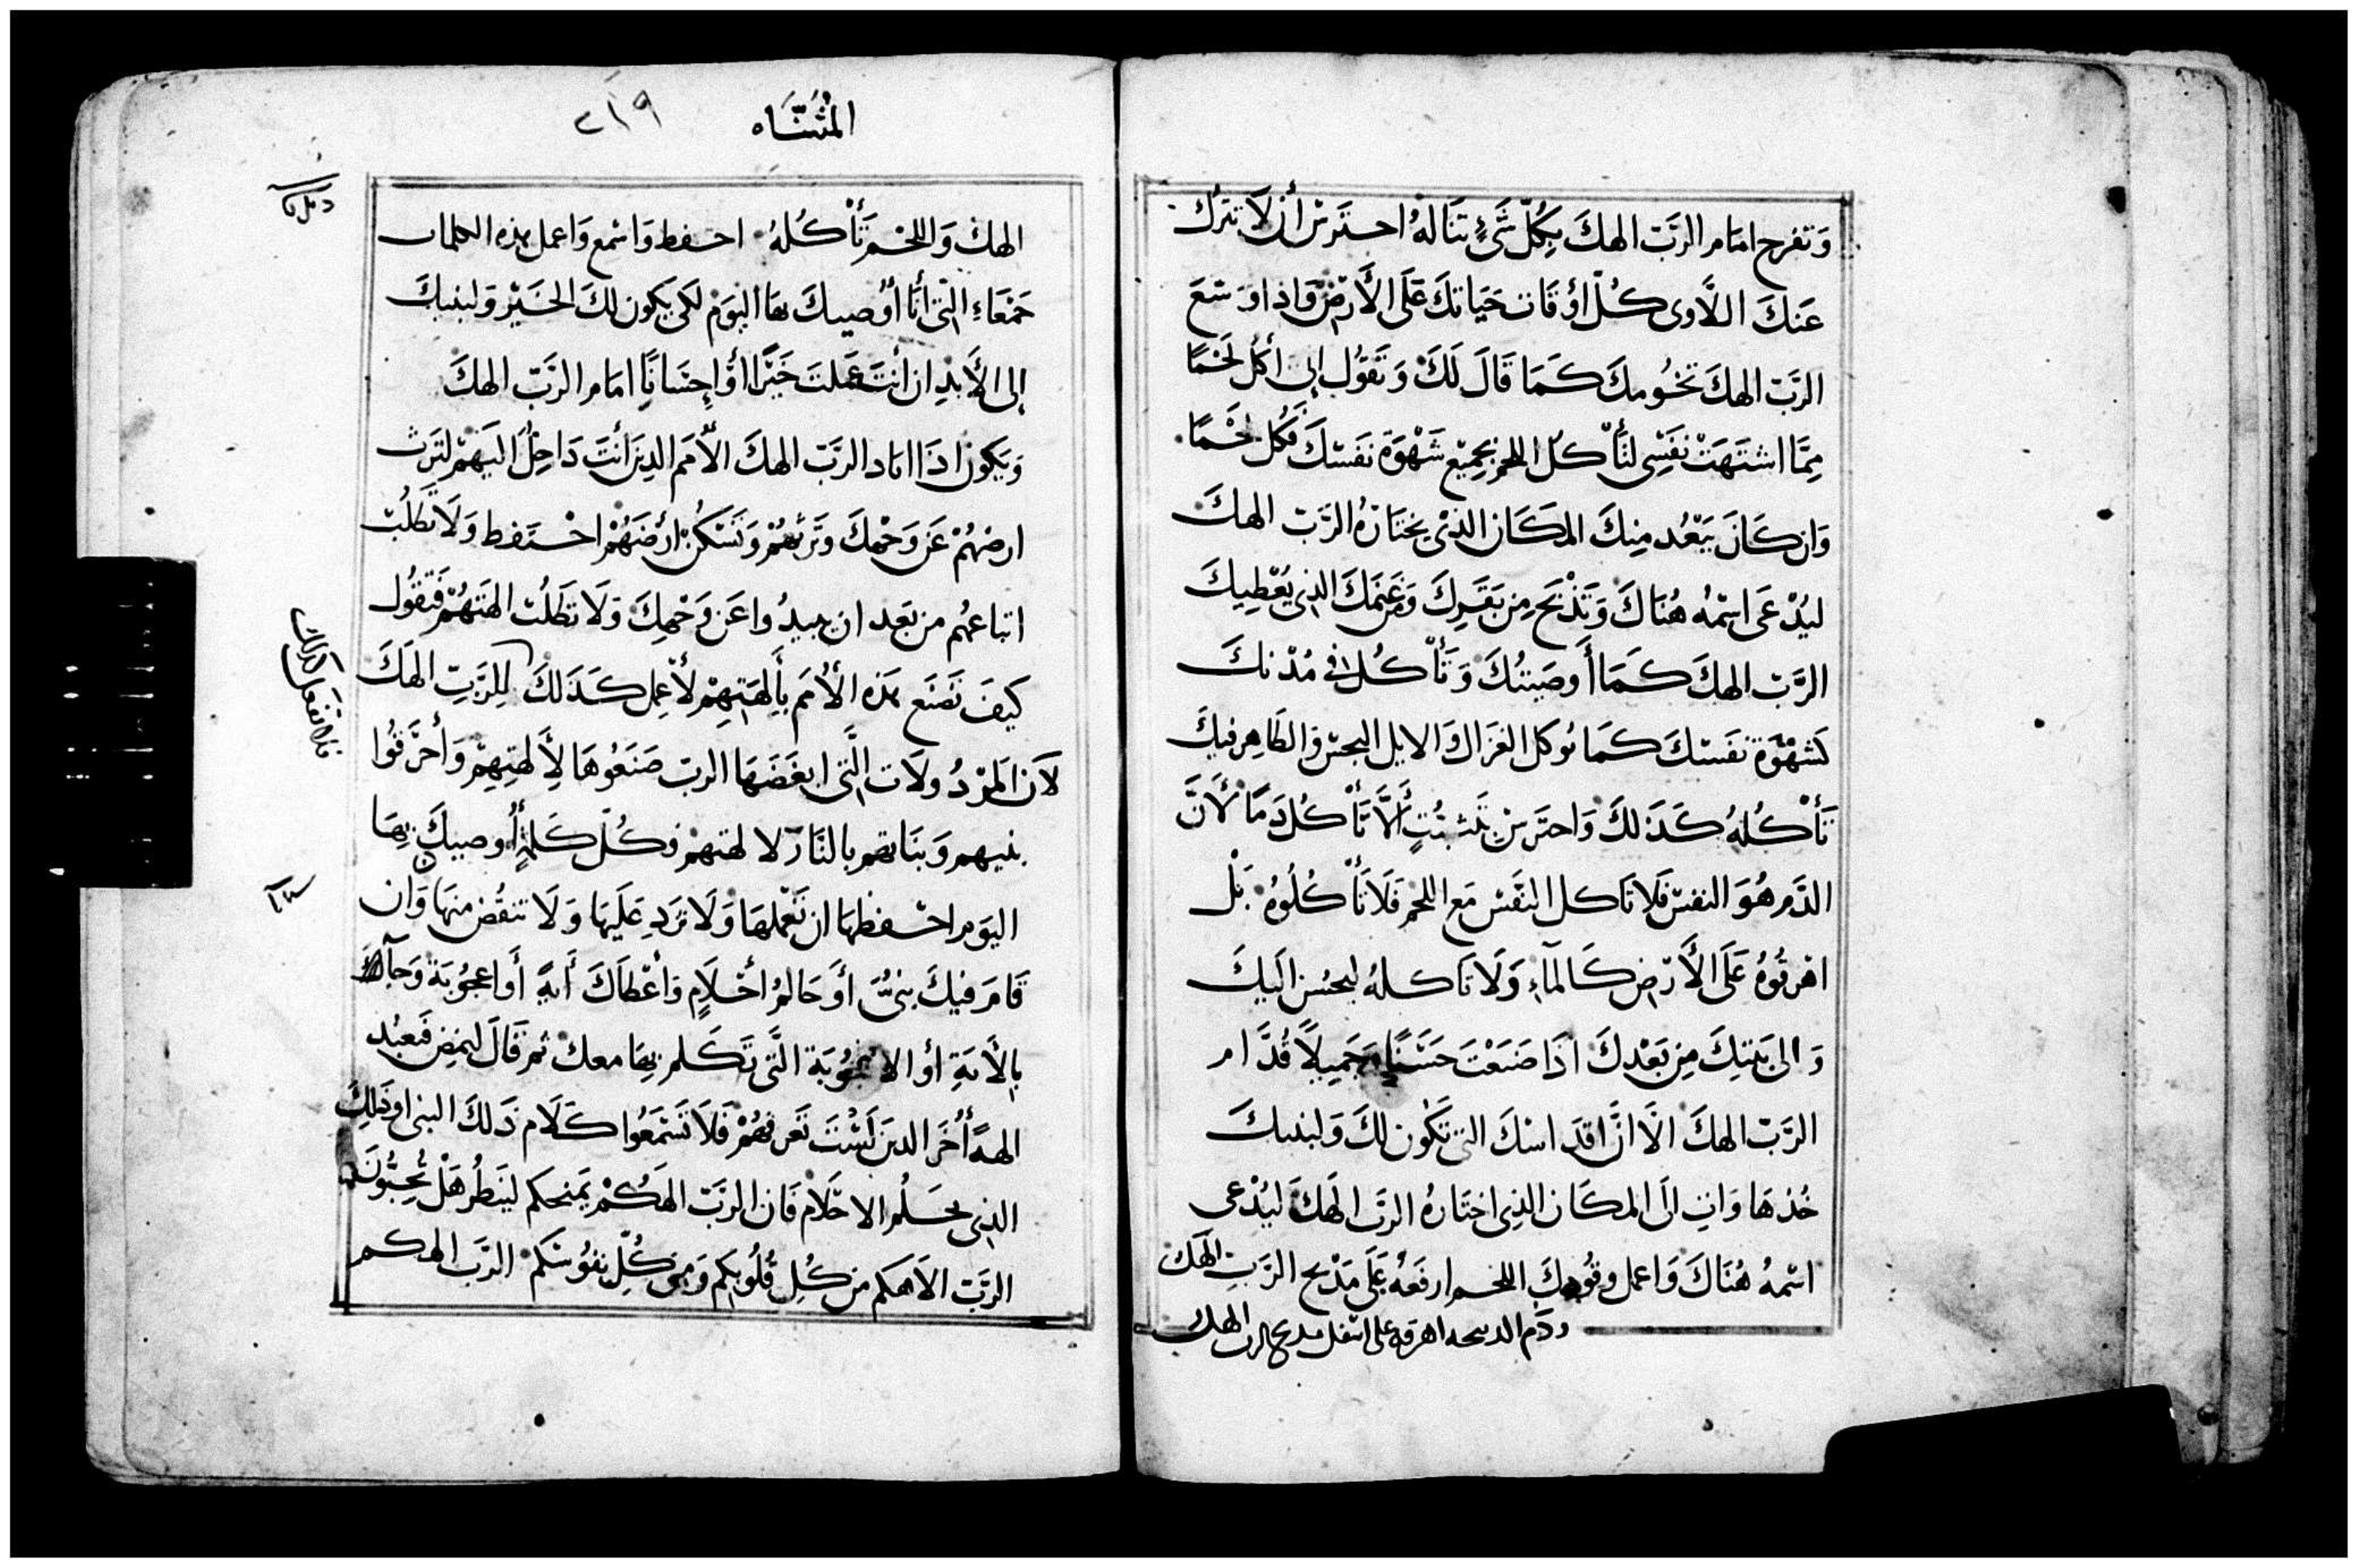 وَتفرح امَام الرَّبّ الهكَ بِكُلّ شَيْءٍ تنَالهُ احترَسْ أن لَا تترك
عَنكَ اللَّاوى كُلّ اوْقَات حَيَاتكَ عَلَى الأَرْضِ وَاذا وَسّعَ
الرَّبّ الهكَ تخُومكَ كَمَا قَالَ لَكَ وَتَقوُل اني أكُل لَحْمًا
مِمَّا اشتَهَتْ نَفْسِى لتَأكُل اللحْم بجَمِيع شَهْوَة نَفسْكَ فَكُل لحْمًا
وَان كَانَ يَبْعُد مِنكَ المكَان الذىْ يختَارُهُ الرَّبّ الهكَ
ليُدْعَى اسْمُه هُنَاكَ وَتَذْبَح مِن بَقَرِكَ وَمن غَنَمكَ الذِى يُعْطِيكَ
الرَّبّ الهكَ كَمَا أَوصَيتُكَ وَتَأْكُل فى مُدْنكَ
كَشَهْوَة نفَسْكَ كَمَا توكل الغزَال وَالايل النجسْ وَالطَاهِر فيكَ
تَأْكُلهُ كَذَلكَ وَاحترَسْ بتَثبُتٍ أَلاَّ تَأْكُل دَمًا لأَنَّ
الدَّم هُوَ النفسْ فَلا تَاكل النفَسْ مَع اللحْم فَلَا تَأْكُلُوهُ بَلْ
اهْرقُوهُ عَلَى الأَرْضِ كَالمآءِ وَلَا تَاكلهُ ليحسُن اليكَ
وَالى بَنيكَ مِن بَعْدكَ اذَا صَنَعْتَ حَسَنًا وَجَميلًا قُدَّام
الرَّبّ الهكَ الَا انَّ اقدَاسكَ التى تَكُون لكَ وَلبنيكَ
خُذهَا وَاتِ الَى المكَان الذِى اختَارهُ الرَّبّ الهَكَ ليُدْعى
اسْمهُ هُنَاكَ وَاعمل وقُودكَ اللحْم ارفَعْهُ عَلَى مَذْبح الرَّبِ الهَكَ
ودَم الدبيحه اهرقه على اسَفل مدبح الرب الهك
المُثَنَّاه
٢١٩
الهكَ وَاللحْم تَأْكُلهُ احفظ وَاسْمع وَاعمل بهذه الكلمات
جَمْعَاءِ التى أنَا أُوْصيكَ بهَا اليَوْم لكى يكون لكَ الخَيْر وَلبنيكَ
إلى الأَبدِ ان أنتَ عَملتَ خَيْرًا أوْ إحِسَانًا امَام الرَّبّ الهكَ
وَيَكون اذَا ابَاد الرَّبّ الهكَ الأُمَم الذِينَ أنتَ دَاخِلُ اليَهْم لتَرِث
ارضهُمْ عَن وَجْهكَ وَتَرثهُمْ وَتَسْكُنْ ارْضَهُمْ احْتَفظ وَلَا تطَلُبْ
اتباعهُم من بَعَد ان يبيدُوا عَن وَجْهكَ وَلَا تطَلُبْ الهتَهُمْ فَتَقُول
كيفَ تَصْنَع هَذه الأُمَم بأَلهَتِهِمْ لأعْمِل كَذَلكَ للِرَّبِّ الهَكَ
لَان المرْدُولَات التَّى ابغَضَهَا الربّ صَنَعُوهَا لأَلهتِهِمْ وَأحْرَقُوا
بنيهم وَبنَاتهم بالنَّار لالهتهمْ فكُلّ كَلمَةٍ أُوصيكَ بِهَا
اليَوم احْفظهَا ان تَعْملهَا وَلَا تزَد عَلَيهَا وَلَا تنقُض منهَا وَان
قَامَ فيكَ نَبىٌّ أوَ حَالمُ أحْلَامٍ وَأعْطَاكَ أيةً أَوا عجُوبَة وَجآت
بِالأَيَةِ أو الاعجُوبَة التَّى تَكَلم بِهَا معكَ ثم قَالَ لنمِض فَنعبُد
الهةً أُخَر الدينَ لَسْتَ تَعرفهُمْ فَلَا تَسْتَمعُوا كَلَام ذَلكَ النبى اوذَلِكَ
الذِى يحلُم الاحْلَام فَان الرَّبّ الهَكُمْ يَمتحنكم ليَنظُر هَلْ تُحِبُّونَ
الرَّبّ الاهكم من كُلِ قُلُوبكم وَمِن كُلِّ نفوُسَكم الرَّب الهكم